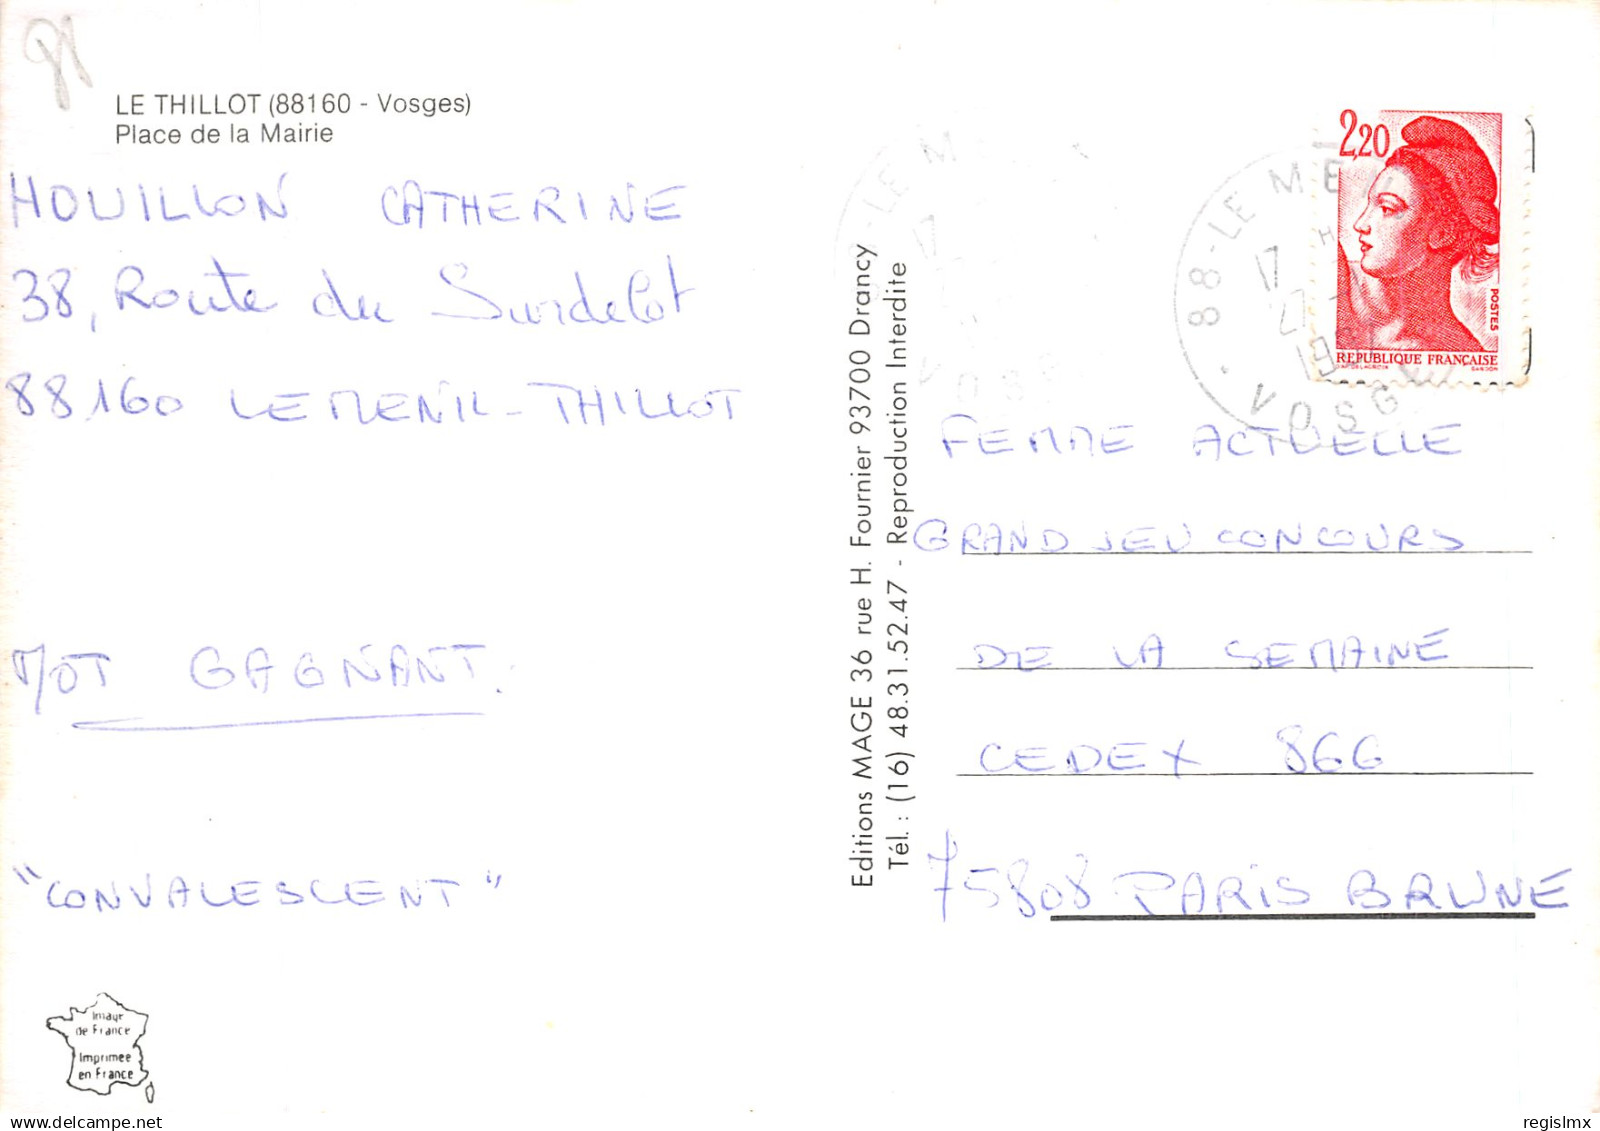 LE THILLOT (88160 - Vosges)
Place de la Mairie
HOUILLON CATHERINE
38, Route du Surdelot
88160 LE MENIL - THILLOT
MOT GAGNANT.
"CONVALESCENT"
Image
de France
Imprimée
en France
Editions MAGE 36 rue H. Fournier 93700 Drancy
Tél. : (16) 48.31.52.47 - Reproduction Interdite
2,20
POSTES
REPUBLIQUE FRANÇAISE
GANDON
88 - LE MÉ
17 H
19
VOSG
FEMME ACTUELLE
GRAND JEU CONCOURS
DE LA SEMAINE
CEDEX 866
75808 PARIS BRUNE
regislmx